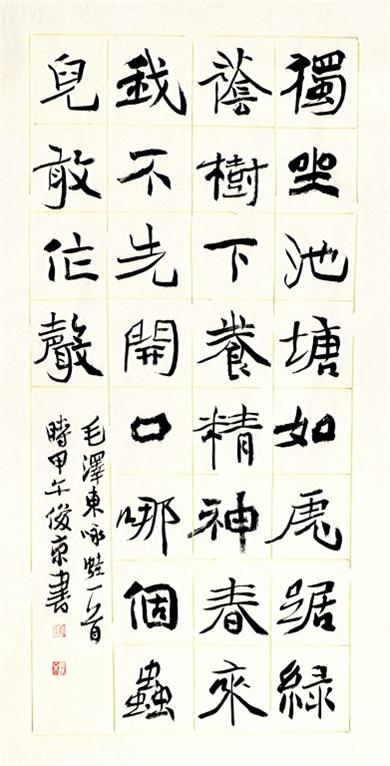 獨坐池塘如虎踞綠
蔭樹下養精神春來
我不先開口哪個蟲
兒敢作聲
毛澤東咏蛙一首
時甲午俊京書